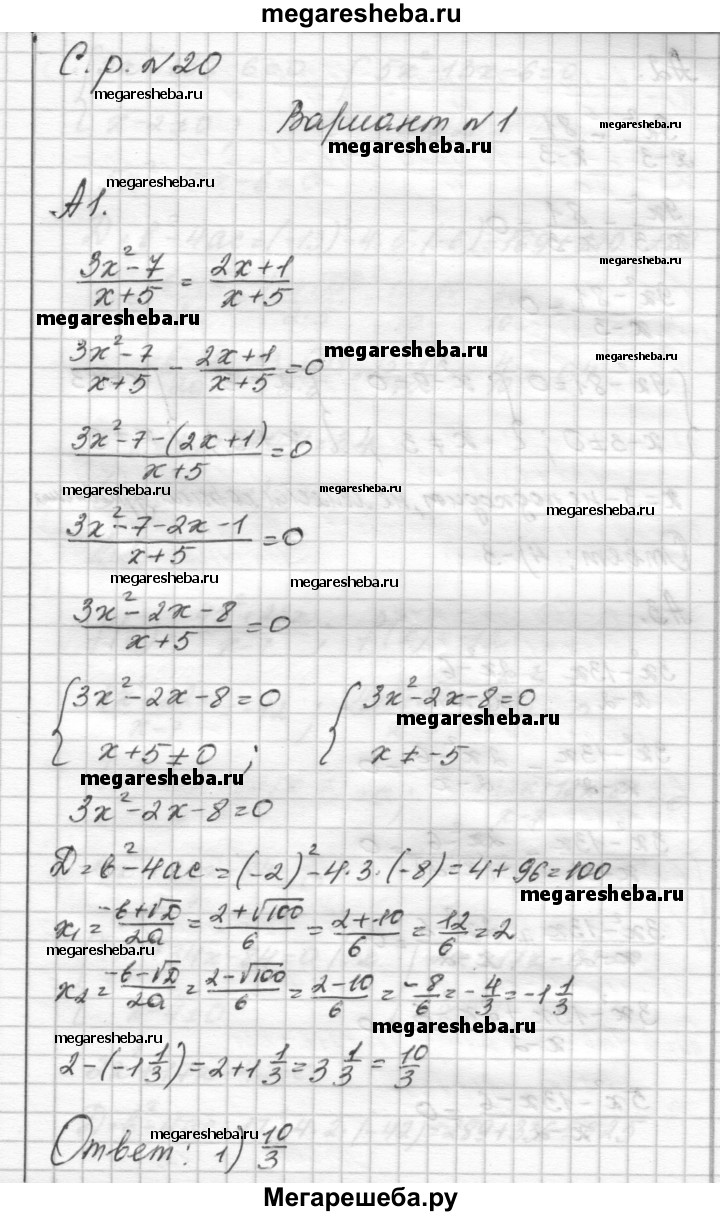 megaresheba.ru
С.р. №20
megaresheba.ru
Вариант №1
megaresheba.ru
megaresheba.ru
megaresheba.ru
А1.
(3x²-7)/(x+5) = (2x+1)/(x+5)
megaresheba.ru
megaresheba.ru
(3x²-7)/(x+5) - (2x+1)/(x+5) = 0
megaresheba.ru
megaresheba.ru
(3x²-7-(2x+1))/(x+5) = 0
megaresheba.ru
megaresheba.ru
megaresheba.ru
(3x²-7-2x-1)/(x+5) = 0
megaresheba.ru
megaresheba.ru
(3x²-2x-8)/(x+5) = 0
{3x²-2x-8=0 {3x²-2x-8=0
megaresheba.ru
x+5≠0 ; x≠-5
megaresheba.ru
3x²-2x-8=0
D=b²-4ac=(-2)²-4·3·(-8)=4+96=100
megaresheba.ru
x₁=(-b+√D)/2a=(2+√100)/6=(2+10)/6=12/6=2
megaresheba.ru
x₂=(-b-√D)/2a=(2-√100)/6=(2-10)/6=-8/6=-4/3=-1 1/3
megaresheba.ru
megaresheba.ru
2-(-1 1/3)=2+1 1/3=3 1/3=10/3
megaresheba.ru
Ответ: 1) 10/3
Мегарешеба.ру